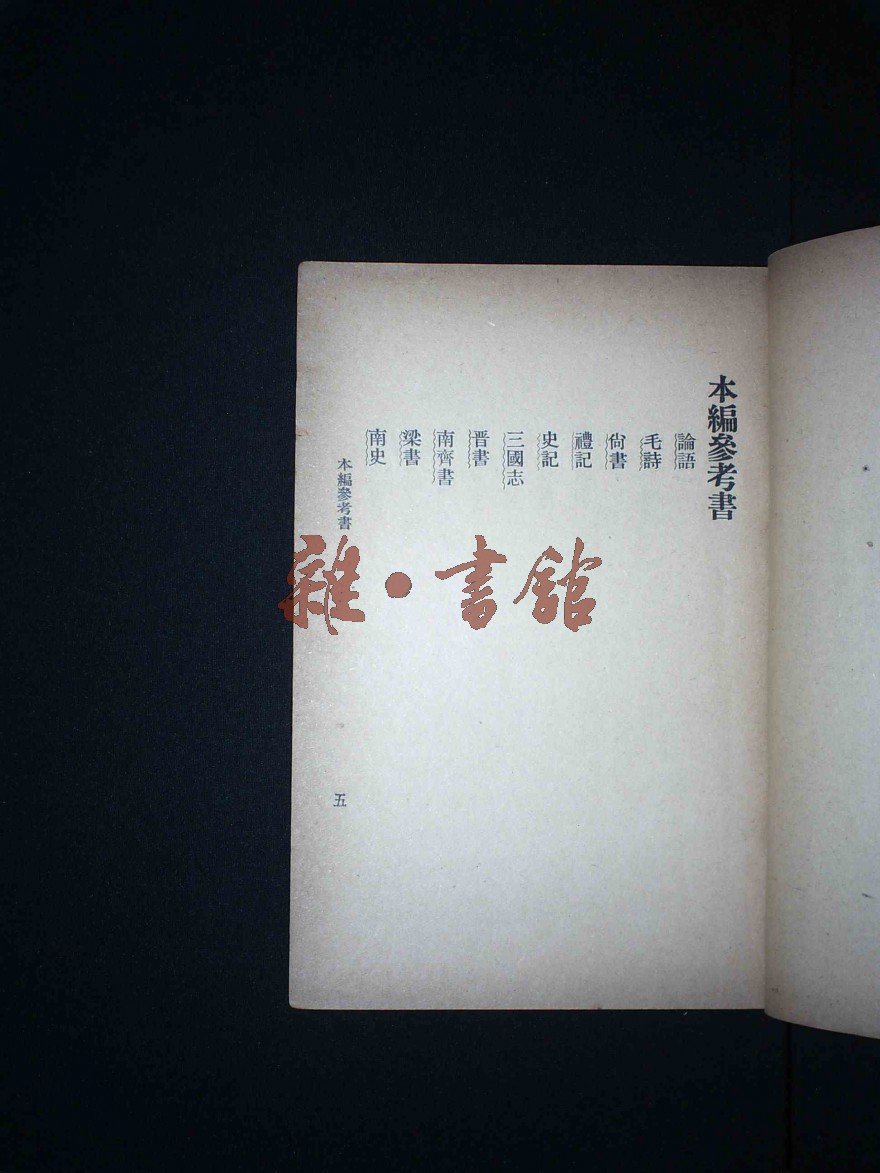 本編參考書
論語
毛詩
尙書
禮記
史記
三國志
晋書
南齊書
梁書
南史
本編參考書
五
雜·書館